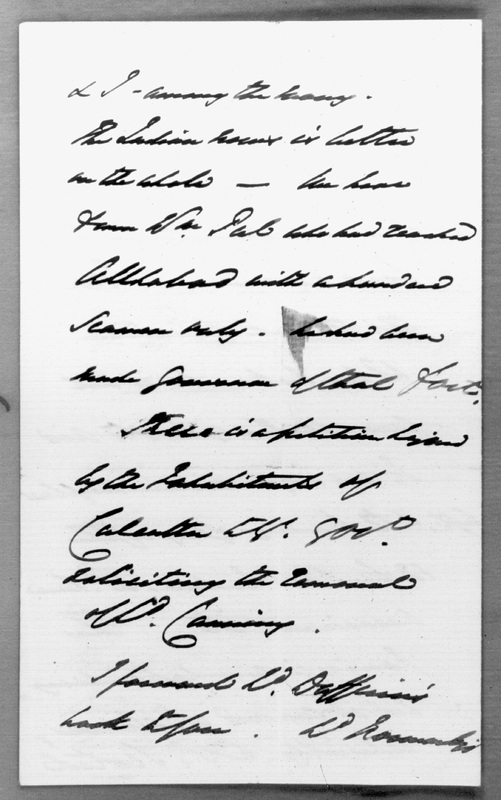 & I - among the many.
The Indian news is better
on the whole — We hear
from Wm. Peel who had reached
Allahabad with a hundred
Seamen only. he had been
made Governor of that Fort.
There is a petition signed
by the Inhabitants of
Calcutta to H. Gov.
soliciting the removal
of Ld. Canning.
I forward Ld. Dufferin's
book to you. Ld